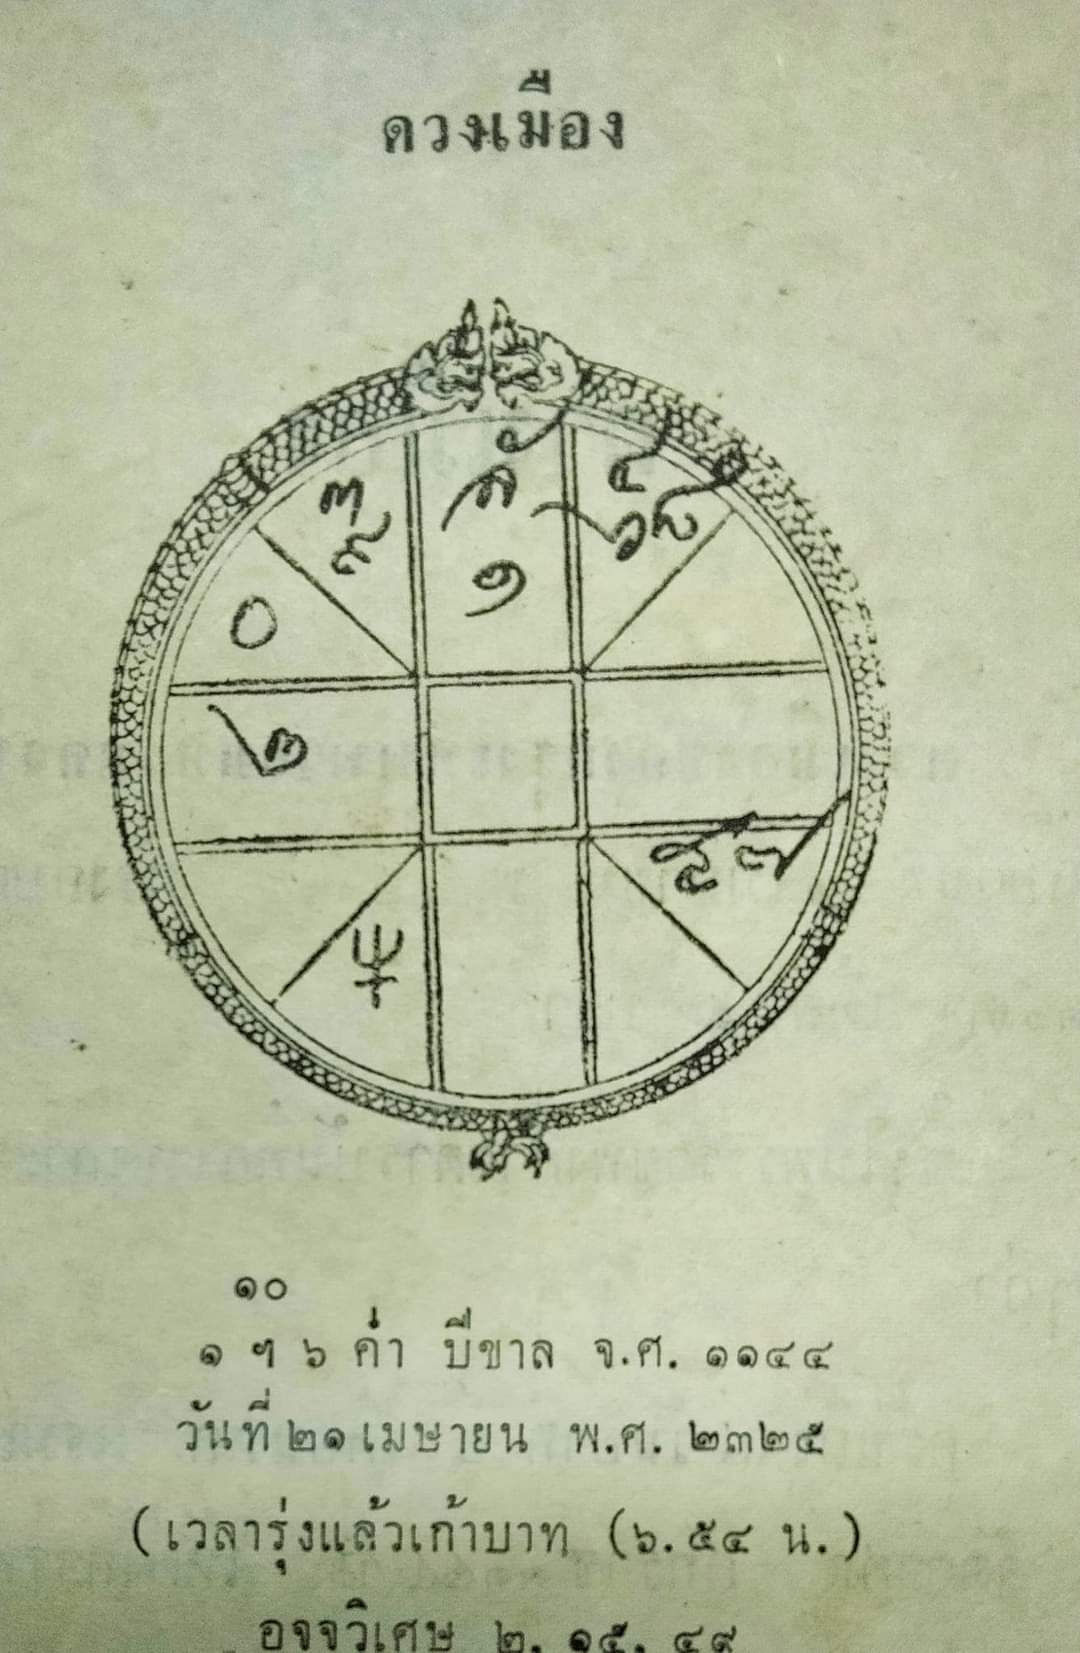 ดวงเมือง
๔
๓ ลั ๖ ๘
๙ ๑
๐
๒
๕ ๗
๑๐
๑ ฯ ๖ ค่ำ ปีขาล จ.ศ. ๑๑๔๔
วันที่ ๒๑ เมษายน พ.ศ. ๒๓๒๕
(เวลารุ่งแล้วเก้าบาท (๖.๕๔ น.)
อจจวิเศษ ๒. ๑๕. ๔๙